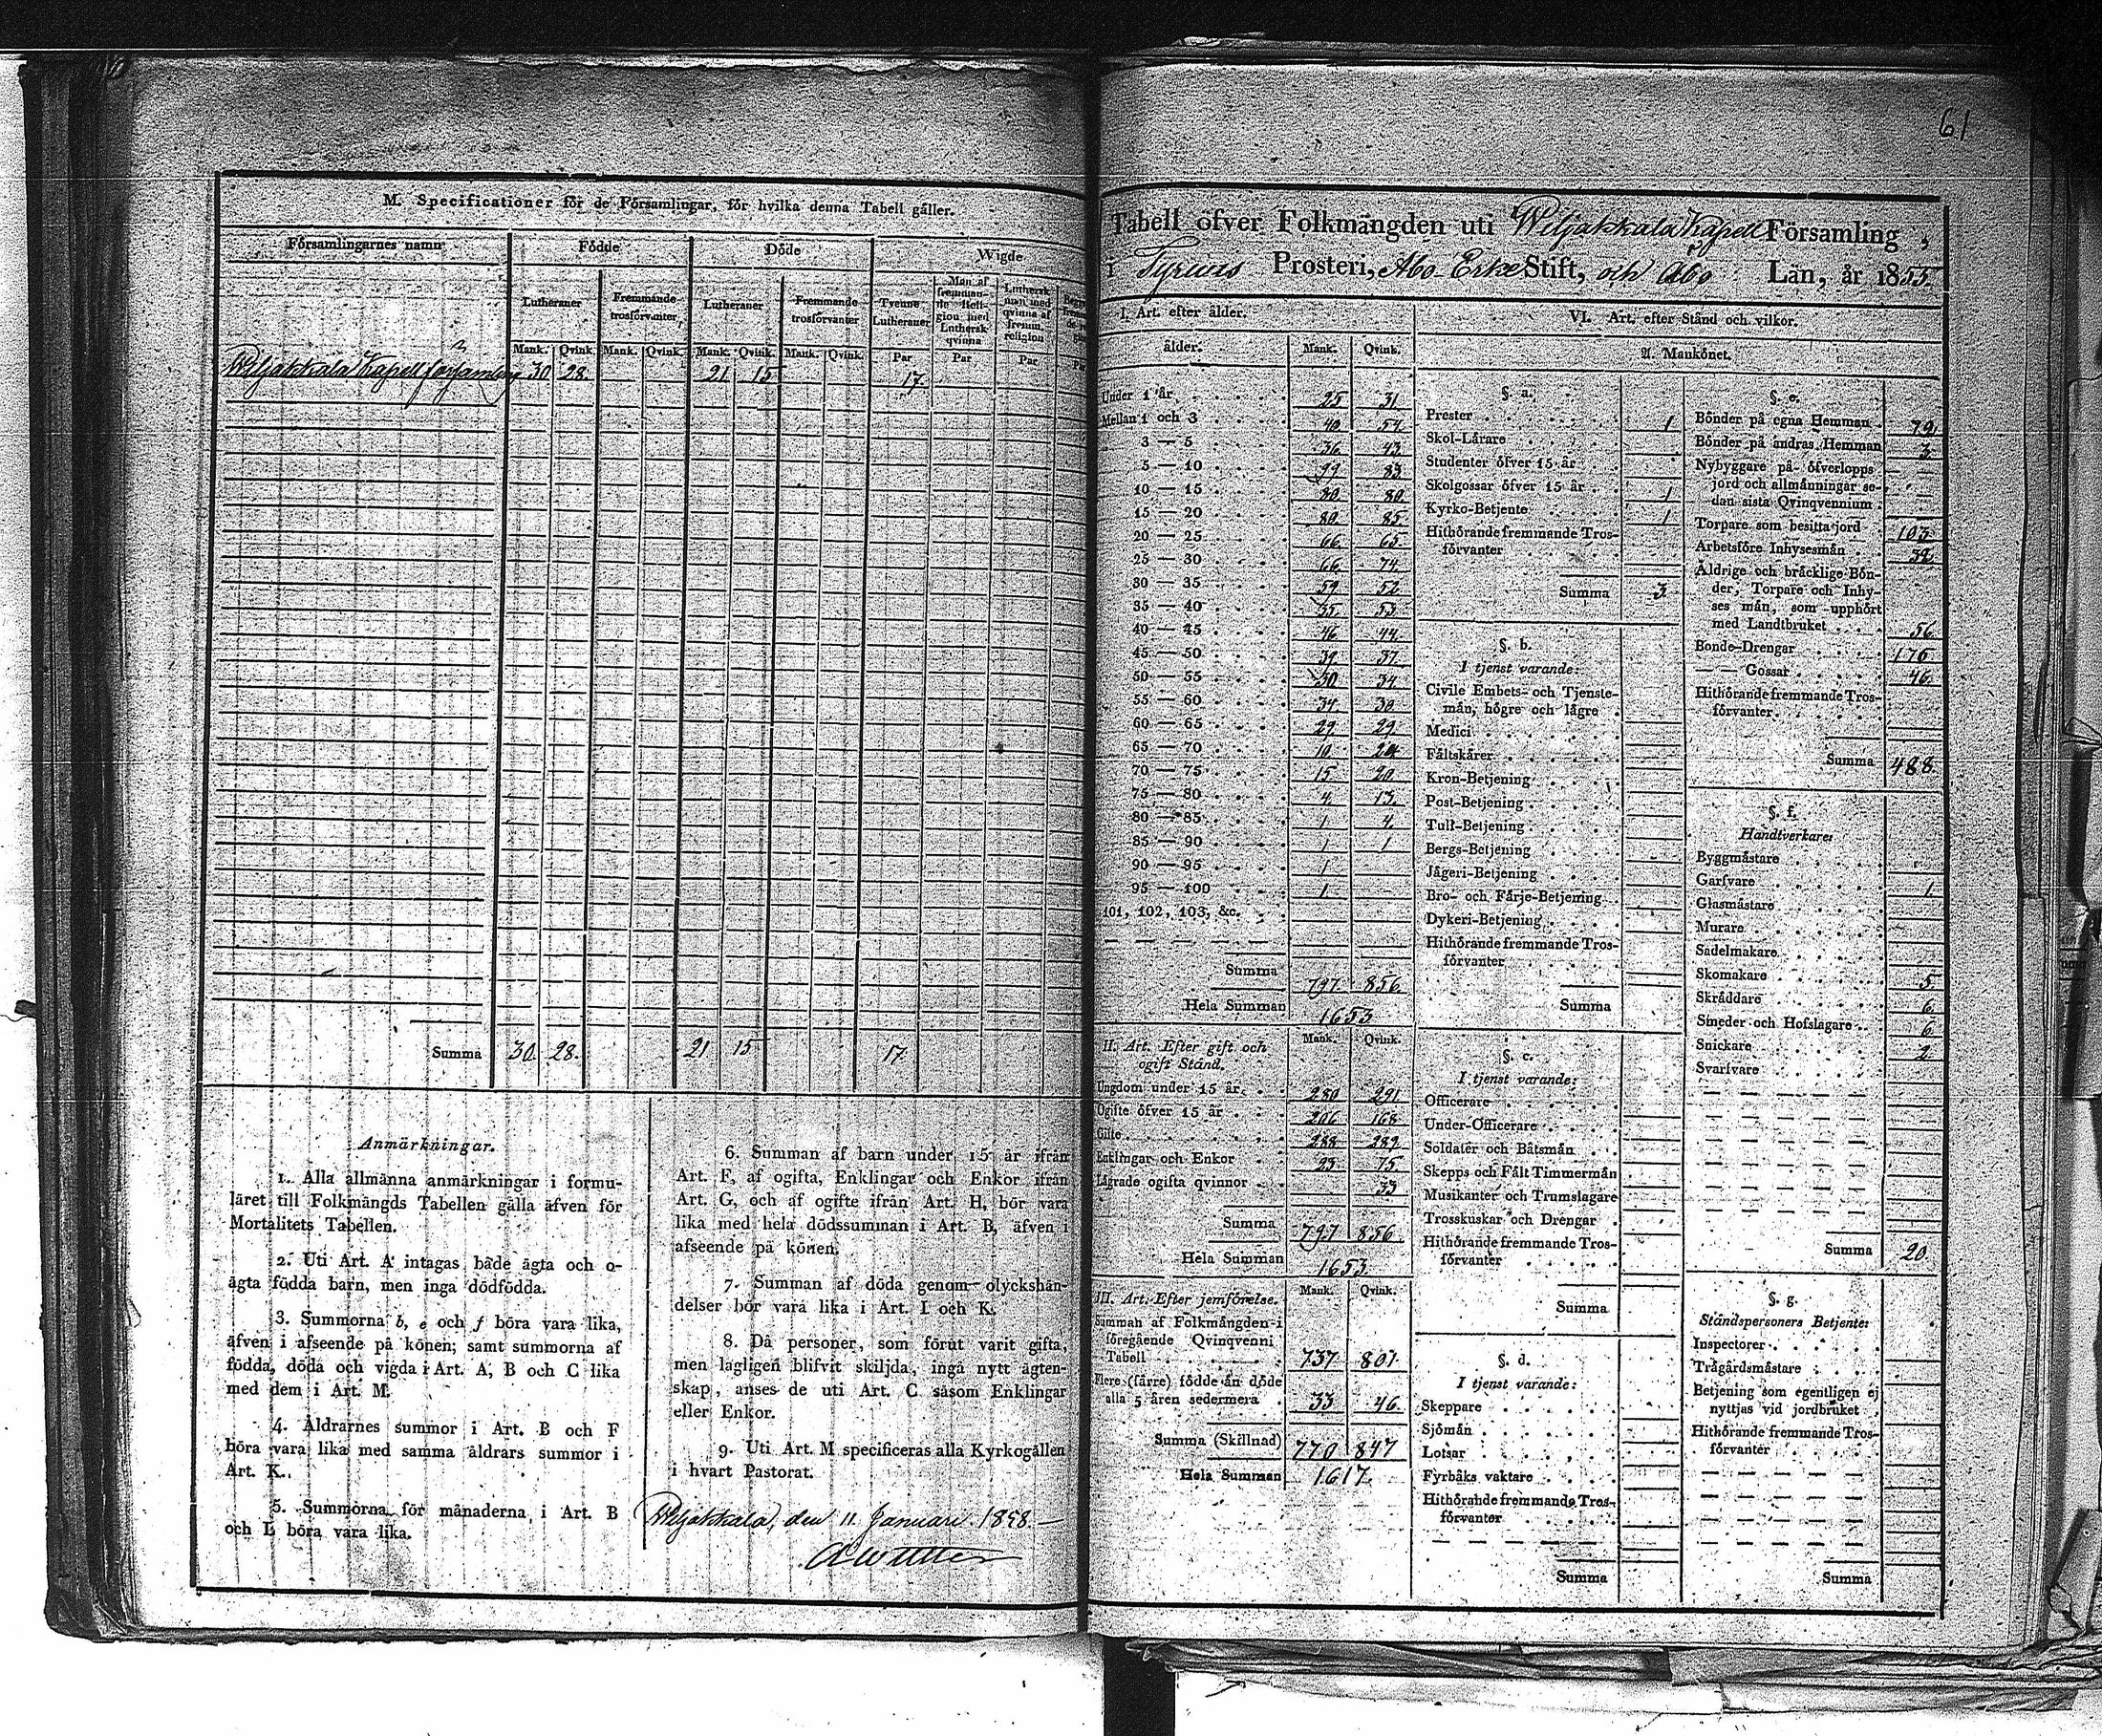 61
M. Specificationer för de Församlingar, för hvilka denna Tabell gäller.
Församlingarnes namn Födde Döde Wigde
Lutheraner Fremmande trosförvanter, Lutheraner Fremmande trosförvanter Tvenne Lutheraner Man af fremman-de Reli-gion med Luthersk qvinna Luthersk man med qvinna af fremm. religion
Mank. Qvink. Mank. Qvink. Mank. Qvink. Mank. Qvink. Par Par Par
Wiljakkala Kapell församling 30 28. 21 15 17.
Summa 30. 28. 21 15 17.
Anmärkningar.
1. Alla allmänna anmärkningar i formu-
läret till Folkmängds Tabellen gälla äfven för
Mortalitets Tabellen.
2. Uti Art. A intagas både ägta och o-
ägta födda barn, men inga dödfödda.
3. Summorna b, e och f böra vara lika,
äfven i afseende på könen; samt summorna af
födda, döda och vigda i Art. A, B och C lika
med dem i Art. M.
4. Åldrarnes summor i Art. B och F
böra vara lika med samma åldrars summor i
Art. K.
5. Summorna för månaderna i Art. B
och L böra vara lika.
6. Summan af barn under 15 år ifrån
Art. F, af ogifta, Enklingar och Enkor ifrån
Art. G, och af ogifte ifrån Art. H, bör vara
lika med hela dödssumman i Art. B, äfven i
afseende på könen.
7. Summan af döda genom olyckshän-
delser bör vara lika i Art. I och K.
8. Då personer, som förut varit gifta,
men lagligen blifvit skiljda, ingå nytt ägten-
skap, anses de uti Art. C såsom Enklingar
eller Enkor.
9. Uti Art. M specificeras alla Kyrkogällen
i hvart Pastorat.
Wiljakkala, den 11. Januari 1858.
Tabell öfver Folkmängden uti Wiljakkala Kapell Församling,
i Tyrwis Prosteri, Åbo Erke Stift, och Åbo Län, år 1855.
I. Art. efter ålder.
ålder. Mank. Qvink.
Under 1 år 25 31.
Mellan 1 och 3 40. 54.
3 — 5 36. 43.
5 — 10 99 83.
10 — 15 80. 80.
15 — 20 80. 85.
20 — 25 66. 65.
25 — 30 66. 74.
30 — 35 59 52
35 — 40 35 53.
40 — 45 46. 44.
45 — 50 39. 37.
50 — 55 30 34.
55 — 60 34. 30
60 — 65 29. 29.
65 — 70 10. 24
70 — 75 15 20.
75 — 80 4. 13.
80 — 85 1 4.
85 — 90 1 1
90 — 95 1
95 — 100 1
101, 102, 103, &c.
Summa 797. 856.
Hela Summan 1653
II. Art. Efter gift och ogift Stånd. Mank. Qvink.
Ungdom under 15 år 280 291.
Ogifte öfver 15 år 206 168.
Gifte 288 289.
Enklingar och Enkor 23. 75.
Lägrade ogifta qvinnor 33
Summa 797 856
Hela Summan 1653.
III. Art. Efter jemförelse. Mank. Qvink.
Summan af Folkmängden i
föregående Qvinqvenni
Tabell 737 801.
Flere (färre) födde än döde
alla 5 åren sedermera 33 46.
Summa (Skillnad) 770 847
Hela Summan 1617.
VI. Art. efter Stånd och vilkor.
A. Mankönet.
§. a.
Prester 1
Skol-Lärare
Studenter öfver 15 år
Skolgossar öfver 15 år 1
Kyrko-Betjente 1
Hithörande fremmande Tros-
förvanter
Summa 3
§. b.
I tjenst varande:
Civile Embets- och Tjenste-
män, högre och lägre
Medici
Fältskärer
Kron-Betjening
Post-Betjening
Tull-Betjening
Bergs-Betjening
Jägeri-Betjening
Bro- och Färje-Betjening
Dykeri-Betjening
Hithörande fremmande Tros-
förvanter
Summa
§. c.
I tjenst varande:
Officerare
Under-Officerare
Soldater och Båtsmän
Skepps och Fält Timmermän
Musikanter och Trumslagare
Trosskuskar och Drengar
Hithörande fremmande Tros-
förvanter
Summa
§. d.
I tjenst varande:
Skeppare
Sjömän
Lotsar
Fyrbåks vaktare
Hithörande fremmande Tros-
förvanter
Summa
§. e.
Bönder på egna Hemman 79.
Bönder på andras Hemman 3.
Nybyggare på öfverlopps
jord och allmänningar se-
dan sista Qvinqvennium
Torpare som besitta jord 103.
Arbetsföre Inhysesmän
Äldrige och bräcklige Bön-
der, Torpare och Inhy-
ses män, som upphört
med Landtbruket 56.
Bonde-Drengar 176.
— — Gossar 46.
Hithörande fremmande Tros-
förvanter
Summa 488.
§. f.
Handtverkare:
Byggmästare
Garfvare 1
Glasmästare
Murare
Sadelmakare
Skomakare 5.
Skräddare 6.
Smeder och Hofslagare 6
Snickare 2.
Svarfvare
Summa 20.
§. g.
Ståndspersoners Betjente:
Inspectorer
Trägårdsmästare
Betjening som egentligen ej
nyttjas vid jordbruket
Hithörande fremmande Tros-
förvanter
Summa